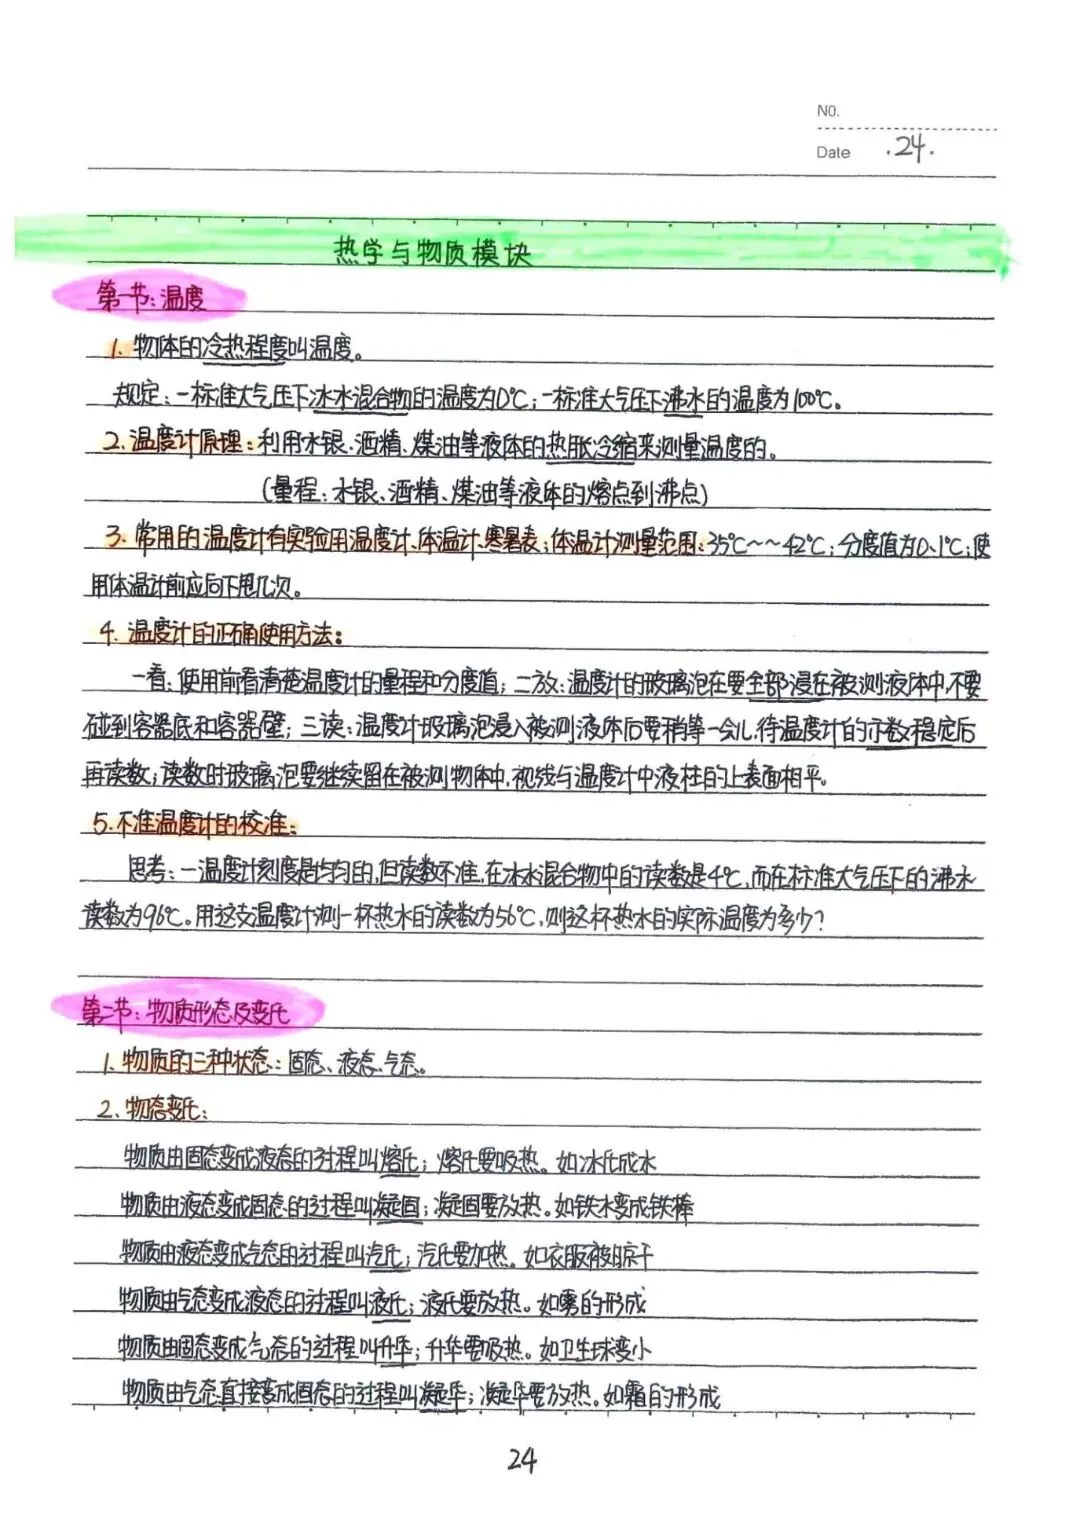 NO.
Date .24.
热学与物质模块
第一节:温度
1.物体的冷热程度叫温度。
规定:一标准大气压下冰水混合物的温度为0℃;一标准大气压下沸水的温度为100℃。
2.温度计原理:利用水银、酒精、煤油等液体的热胀冷缩来测量温度的。
(量程:水银、酒精、煤油等液体的熔点到沸点)
3.常用的温度计有实验用温度计、体温计、寒暑表;体温计测量范围:35℃~~42℃;分度值为0.1℃;使
用体温计前应向下甩几次。
4.温度计的正确使用方法:
一看:使用前看清楚温度计的量程和分度值;二放:温度计的玻璃泡在要全部浸在被测液体中,不要
碰到容器底和容器壁;三读:温度计玻璃泡浸入被测液体后要稍等一会儿,待温度计的示数稳定后
再读数;读数时玻璃泡要继续留在被测物体中,视线与温度计中液柱的上表面相平。
5.不准温度计的校准:
思考:一温度计刻度是均匀的,但读数不准,在冰水混合物中的读数是4℃,而在标准大气压下的沸水
读数为96℃。用这支温度计测一杯热水的读数为56℃,则这杯热水的实际温度为多少?
第二节:物质形态及变化
1.物质的三种状态:固态、液态、气态。
2.物态变化:
物质由固态变成液态的过程叫熔化;熔化要吸热。如冰化成水
物质由液态变成固态的过程叫凝固;凝固要放热。如铁水变成铁棒
物质由液态变成气态的过程叫汽化;汽化要加热。如衣服被晾干
物质由气态变成液态的过程叫液化;液化要放热。如雾的形成
物质由固态变成气态的过程叫升华;升华要吸热。如卫生球变小
物质由气态直接变成固态的过程叫凝华;凝华要放热。如霜的形成
24